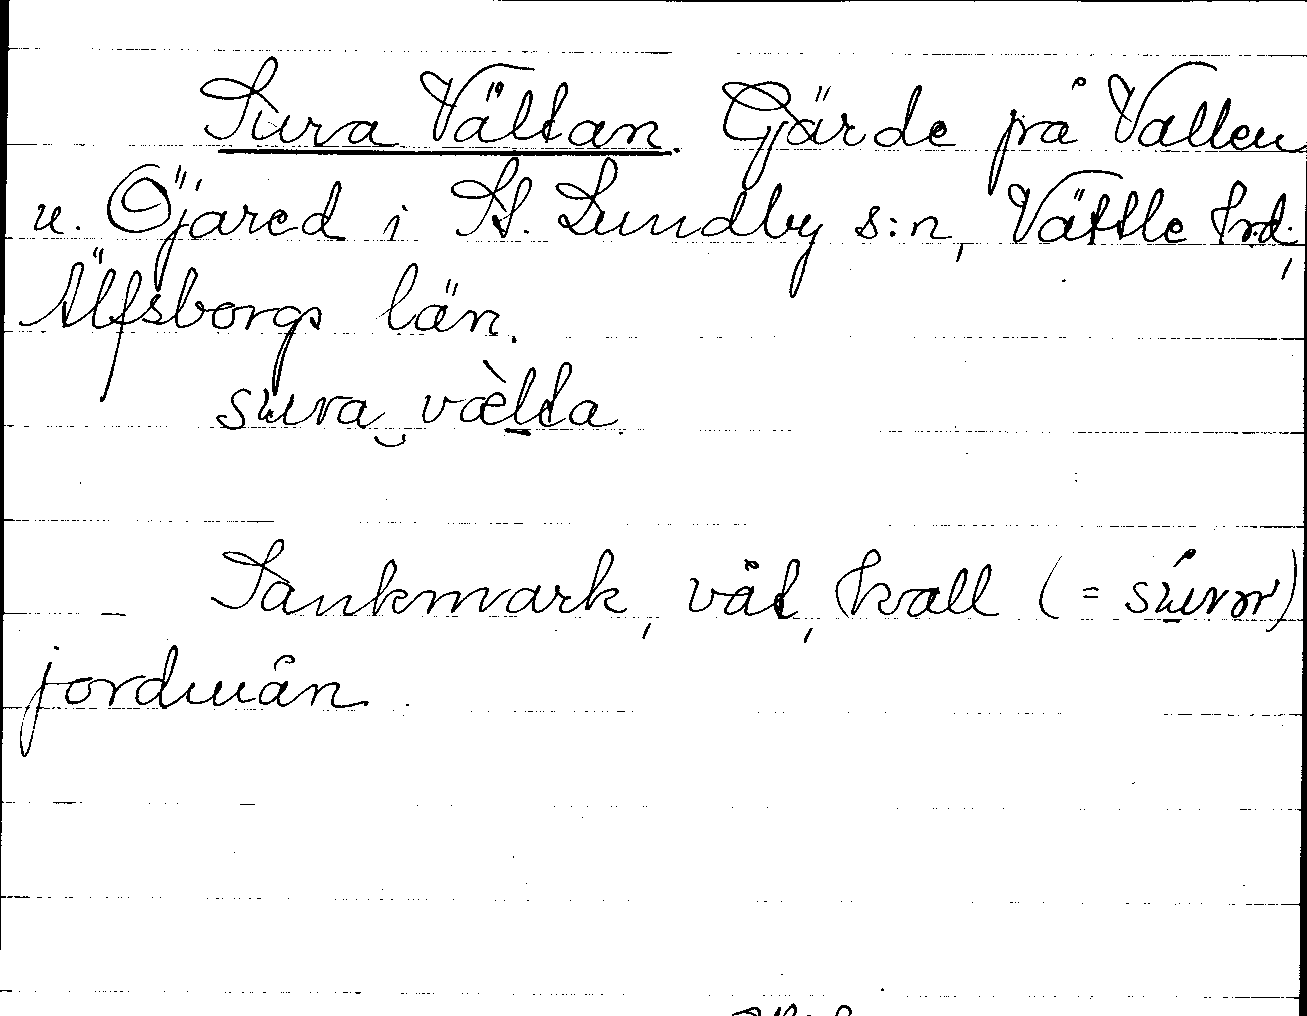 Sura Vältan. Gärde på Vallen
u. Öjared i St. Lundby s:n, Vättle hd,
Älfsborgs län.
sura vælta.
Sankmark, våt, kall (= surør)
jordmån.